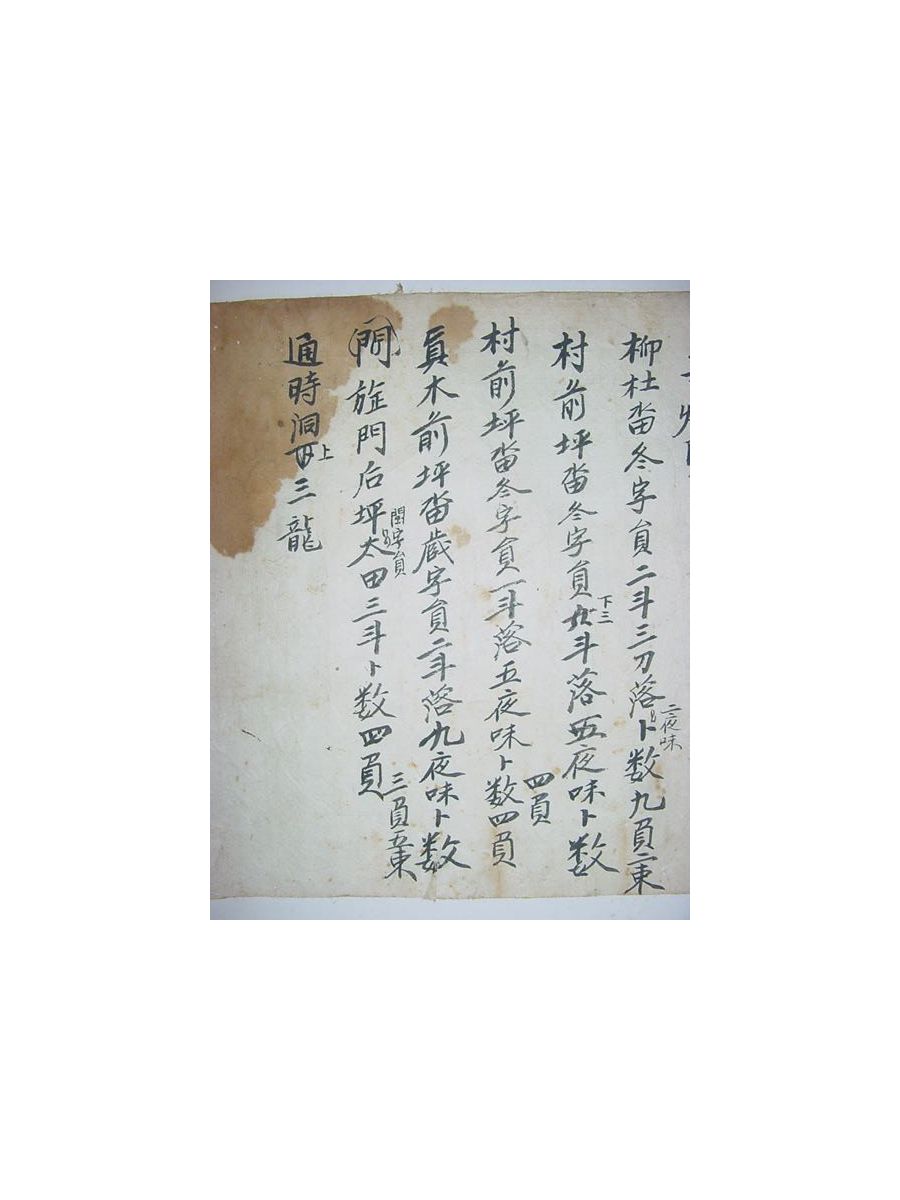 柳杜畓冬字員二斗三刀落卜數九負二束
二夜味
村前坪畓冬字員斗落五夜味卜數
下三
四負
村前坪畓冬字員一斗落五夜味卜數四負
眞木前坪畓歲字員二斗落九夜味卜數
三負五束
旌門后坪太田三斗卜數四負
閏字員
通時洞三龍
上